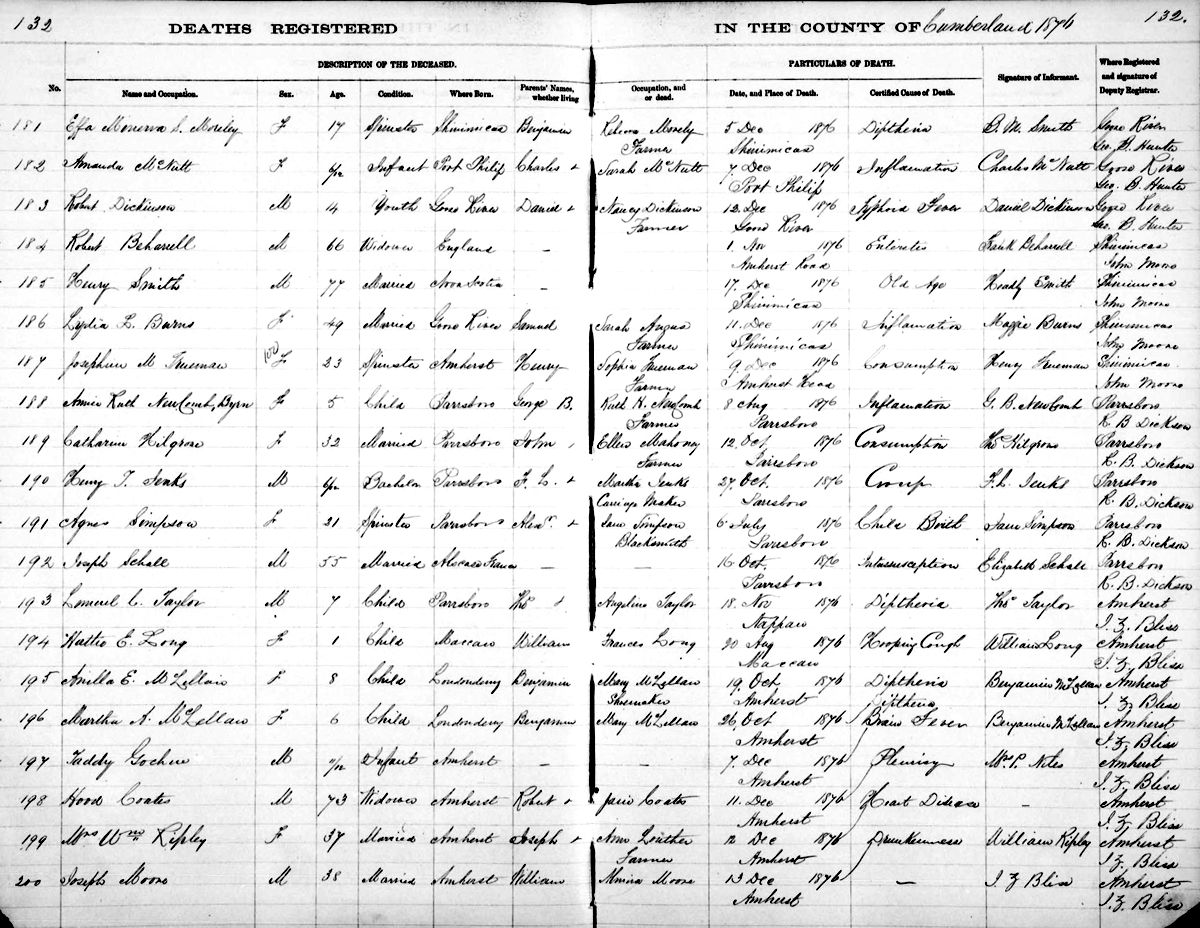 132
132.
DEATHS REGISTERED IN THE COUNTY OF Cumberland 1876
DESCRIPTION OF THE DECEASED. PARTICULARS OF DEATH.
No. Name and Occupation. Sex. Age. Condition. Where Born. Parents' Names, whether living Occupation, and or dead. Date, and Place of Death. Certified Cause of Death. Signature of Informant. Where Registered and signature of Deputy Registrar.
181 Effa Minerva S. Morely F 17 Spinster Shinimicas Benjamin Rebecca Morely 5 Dec 1876 Diptheria B. M. Smith Goose River
Farmer Shinimicas Geo. B. Hunter
182 Amanda McNutt F 6/12 Infant Port Philip Charles + Sarah McNutt 7 Dec 1876 Inflamation Charles McNutt Goose River
Port Philip Geo. B. Hunter
183 Robert Dickinson M 14 Youth Goose River Daniel + Nancy Dickinson 12. Dec 1876 Typhoid Fever Daniel Dickinson Goose River
Farmer Goose River Geo. B. Hunter
184 Robert Beharrell M 66 Widower England — 1. Nov 1876 Enteretis Beharrell Shinimicas
Amherst Road John Moore
185 Henry Smith M 77 Married Nova Scotia — 17. Dec 1876 Old Age Smith Shinimicas
Shinimicas John Moore
186 Lydia L. Burns F 49 Married Goose River Samuel Sarah Angus 11. Dec 1876 Inflamation Maggie Burns Shinimicas
Farmer Shinimicas John Moore
187 Josephine M Freeman F 23 Spinster Amherst Henry Sophia Freeman 9. Dec 1876 Consumption Henry Freeman Shinimicas
Farmer Amherst Head John Moore
188 Annie Ruth NewComb, Byrn F 5 Child Parrsboro George B. Ruth H. NewComb 8 Aug 1876 Inflamation G. B. NewComb Parrsboro
Farmer Parrsboro R. B. Dickson
189 Catharine Kilgrow F 32 Married Parrsboro John Ellen Mahoney 12. Oct 1876 Consumption Thos Kilgrow Parrsboro
Farmer Parrsboro R. B. Dickson
190 Henry T. Jenks M 6/12 Bachelor Parrsboro F. L. + Martha Jenks 27. Oct 1876 Croup F. L. Jenks Parrsboro
Carriage Maker Parrsboro R. B. Dickson
191 Agnes Simpson F 21 Spinster Parrsboro Alexr. + Jane Simpson 6 July 1876 Child Birth Jane Simpson Parrsboro
Blacksmith Parrsboro R. B. Dickson
192 Joseph Schall M 55 Married — — 16 Oct. 1876 Intussusception Elizabeth Schall Parrsboro
Parrsboro R. B. Dickson
193 Lemuel L. Taylor M 7 Child Parrsboro Thos + Angeline Taylor 18. Nov 1876 Diptheria Thos Taylor Amherst
Nappan I. Z. Bliss
194 Hattie E. Long F 1 Child Maccan William Frances Long 20 Aug 1876 Hooping Cough William Long Amherst
Maccan I. Z. Bliss
195 Arilla E. McLellan F 8 Child Londonderry Benjamin Mary McLellan 19. Oct 1876 Diptheria Benjamin McLellan Amherst
Shoemaker Amherst Diptheria I. Z. Bliss
196 Martha A. McLellan F 6 Child Londonderry Benjamin Mary McLellan 26. Oct 1876 Brain Fever Benjamin McLellan Amherst
Amherst I. Z. Bliss
197 Taddy M Infant Amherst — — 7 Dec 1876 Pleurisy Mrs P. Niles Amherst
Amherst I. Z. Bliss
198 Hood Coates M 73 Widower Amherst Robert + Jane Coates 11. Dec 1876 Heart Disease — Amherst
Amherst I. Z. Bliss
199 Mrs Wm Ripley F 37 Married Amherst Joseph + Ann 12 Dec 1876 Drunkenness William Ripley Amherst
Farmer Amherst I. Z. Bliss
200 Joseph Moore M 38 Married Amherst William Almira Moore 13 Dec 1876 — I. Z Bliss Amherst
Amherst I. Z. Bliss